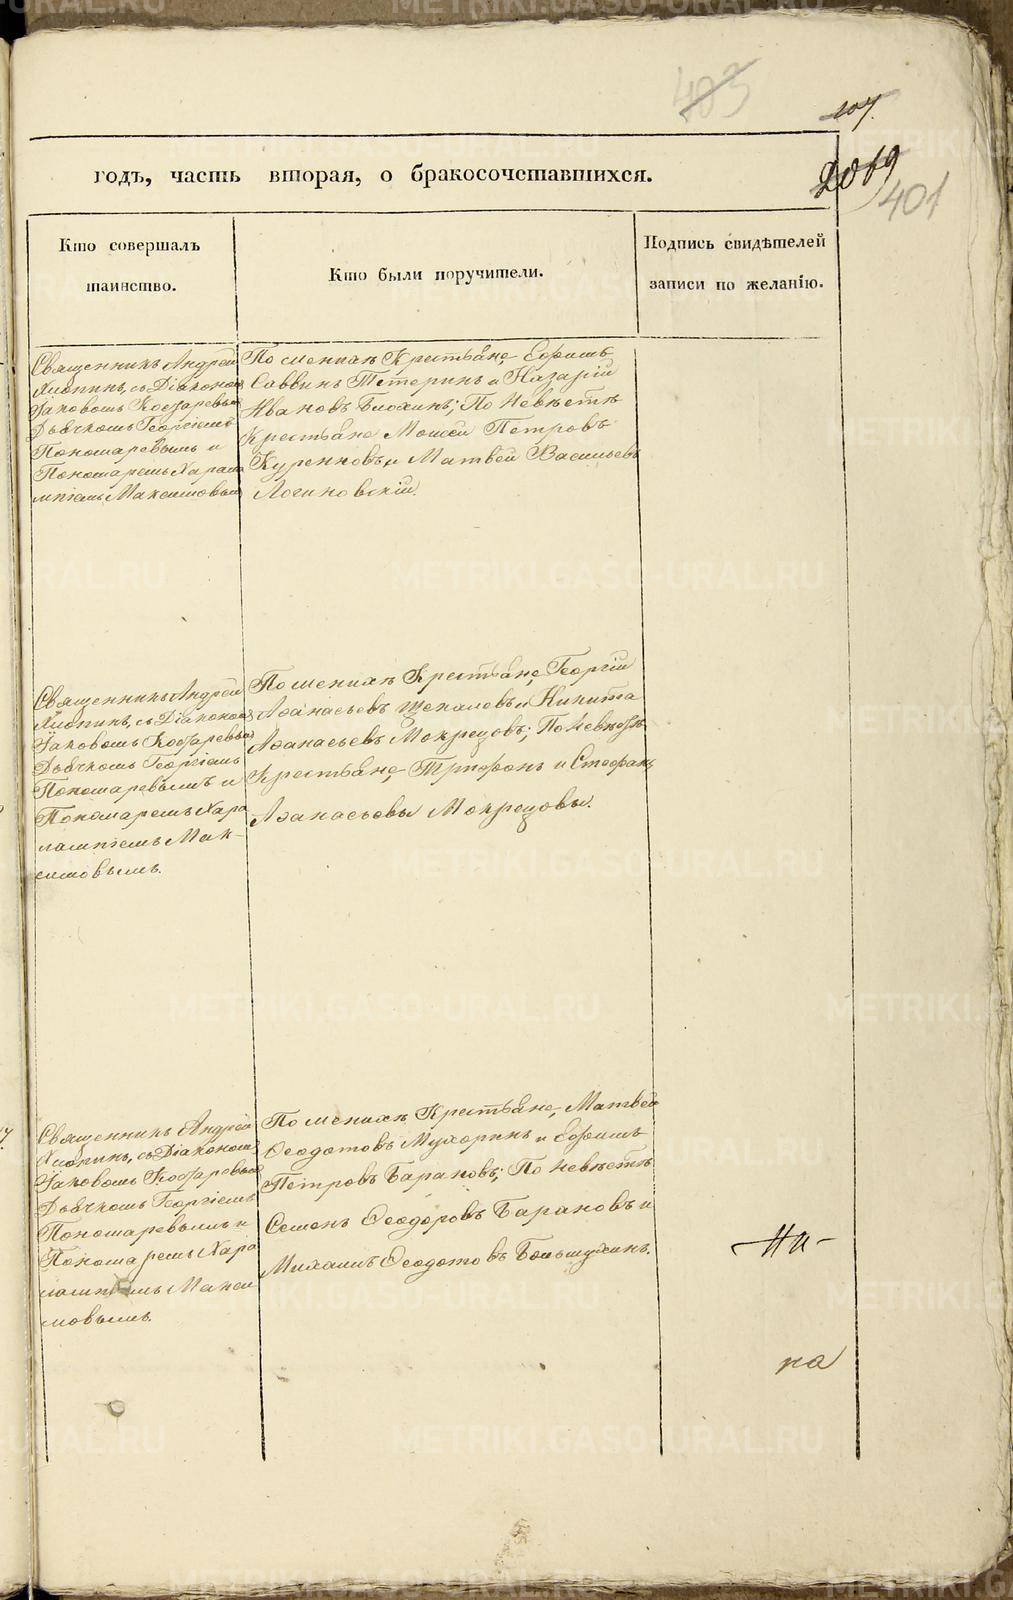 403
107.
2069
401
годъ, часть вторая, о бракосочетавшихся.
Кто совершалъ
таинство.
Кто были поручители.
Подпись свидѣтелей
записи по желанію.
Священникъ Андрей
Хлопинъ, съ Діакономъ
Іаковомъ Косаревымъ
Дьячкомъ Георгіемъ
Пономаревымъ и
Пономаремъ Харала
мпіемъ Максимовымъ
По женихѣ Крестьяне, Ефимъ
Саввинъ Тетеринъ и Назарій
Ивановъ Блохинъ; По Невѣстѣ
Крестьяне Моисей Петровъ
Куренновъ и Матвей Васильевъ
Логиновскій.
Священникъ Андрей
Хлопинъ, съ Діакономъ
Іаковомъ Косаревымъ
Дьячкомъ Георгіемъ
Пономаревымъ и
Пономаремъ Хара
лампіемъ Мак-
симовымъ.
По женихѣ Крестьяне, Георгій
Аѳанасьевъ и Никита
Аѳанасьевъ Мокрецовъ; По Невѣстѣ
Крестьяне, Трифонъ и Стефанъ
Аѳанасьевы Мокрецовы.
Священникъ Андрей
Хлопинъ, съ Діакономъ
Іаковомъ Косаревымъ
Дьячкомъ Георгіемъ
Пономаревымъ и
Пономаремъ Хара
лампіемъ Макси-
мовымъ.
По женихѣ Крестьяне, Матвей
Ѳеодотовъ Мухоринъ и Ефимъ
Петровъ Барановъ; По Невѣстѣ
Семенъ Ѳеодоровъ Барановъ и
Михаилъ Ѳеодотовъ
на
METRIKI.GASO-URAL.RU